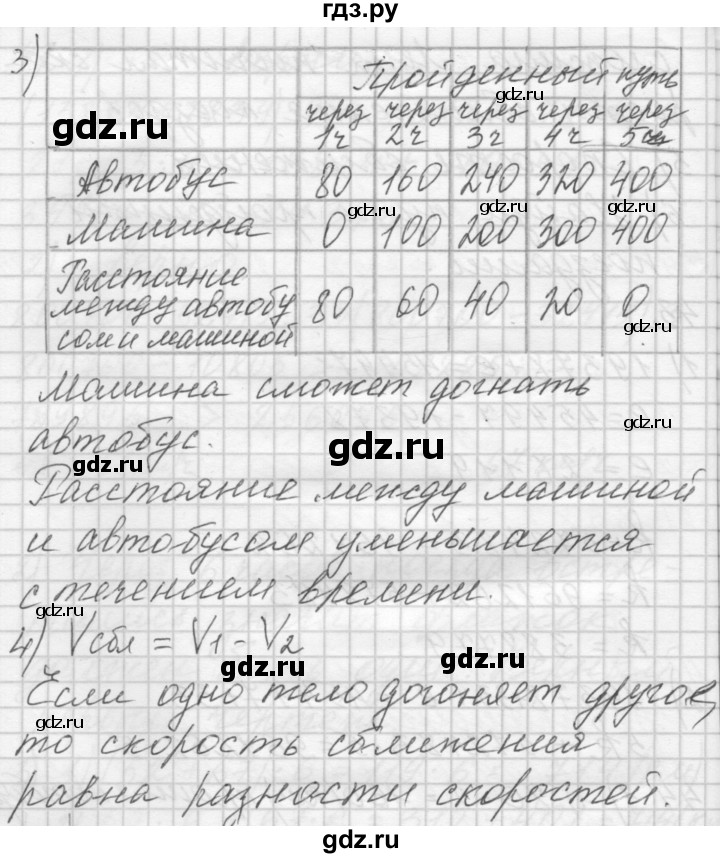 гдз.ру
3)
Пройденный путь
gdz.ru
gdz.ru
через 1ч через 2ч через 3ч через 4ч через 5ч
Автобус 80 160 240 320 400
gdz.ru gdz.ru gdz.ru
Машина 0 100 200 300 400
Расстояние
между автобу
сом и машиной 80 60 40 20 0
gdz.ru
Машина сможет догнать
gdz.ru
автобус.
gdz.ru
gdz.ru
Расстояние между машиной
и автобусом уменьшается
с течением времени.
gdz.ru
4) Vсбл = V1 - V2
gdz.ru
gdz.ru
Если одно тело догоняет другое,
gdz.ru
то скорость сближения
равна разности скоростей.
gdz.ru